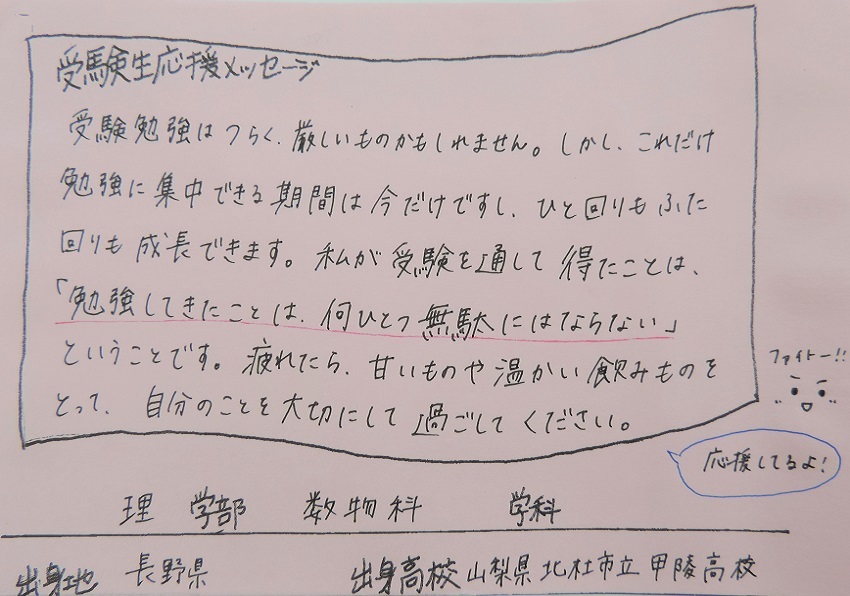 受験生応援メッセージ
受験勉強はつらく、厳しいものかもしれません。しかし、これだけ
勉強に集中できる期間は今だけですし、ひと回りもふた
回りも成長できます。私が受験を通して得たことは、
「勉強してきたことは、何ひとつ無駄にはならない」
ということです。疲れたら、甘いものや温かい飲みものを
とって、自分のことを大切にして過ごしてください。
ファイトー!!
応援してるよ!
理 学部 数物科 学科
出身地 長野県 出身高校 山梨県北杜市立甲陵高校